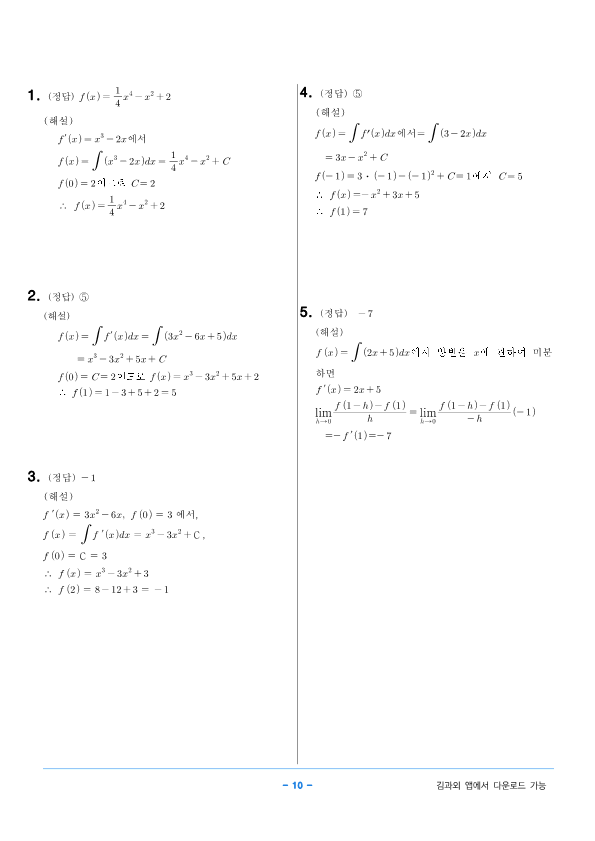 1. (정답) f(x) = 1/4 x⁴ − x² + 2
(해설)
f′(x) = x³ − 2x에서
f(x) = ∫(x³ − 2x)dx = 1/4 x⁴ − x² + C
f(0) = 2 C = 2
∴ f(x) = 1/4 x⁴ − x² + 2
2. (정답) ⑤
(해설)
f(x) = ∫f′(x)dx = ∫(3x² − 6x + 5)dx
= x³ − 3x² + 5x + C
f(0) = C = 2이므로 f(x) = x³ − 3x² + 5x + 2
∴ f(1) = 1 − 3 + 5 + 2 = 5
3. (정답) −1
(해설)
f′(x) = 3x² − 6x, f(0) = 3 에서,
f(x) = ∫f′(x)dx = x³ − 3x² + C,
f(0) = C = 3
∴ f(x) = x³ − 3x² + 3
∴ f(2) = 8 − 12 + 3 = −1
4. (정답) ⑤
(해설)
f(x) = ∫f′(x)dx에서 = ∫(3 − 2x)dx
= 3x − x² + C
f(−1) = 3 · (−1) − (−1)² + C = 1에서 C = 5
∴ f(x) = −x² + 3x + 5
∴ f(1) = 7
5. (정답) −7
(해설)
f(x) = ∫(2x + 5)dx에서 양변을 x에 관하여 미분
하면
f′(x) = 2x + 5
lim h→0 f(1−h)−f(1)/h = lim h→0 f(1−h)−f(1)/−h (−1)
= −f′(1) = −7
− 10 −
김과외 앱에서 다운로드 가능